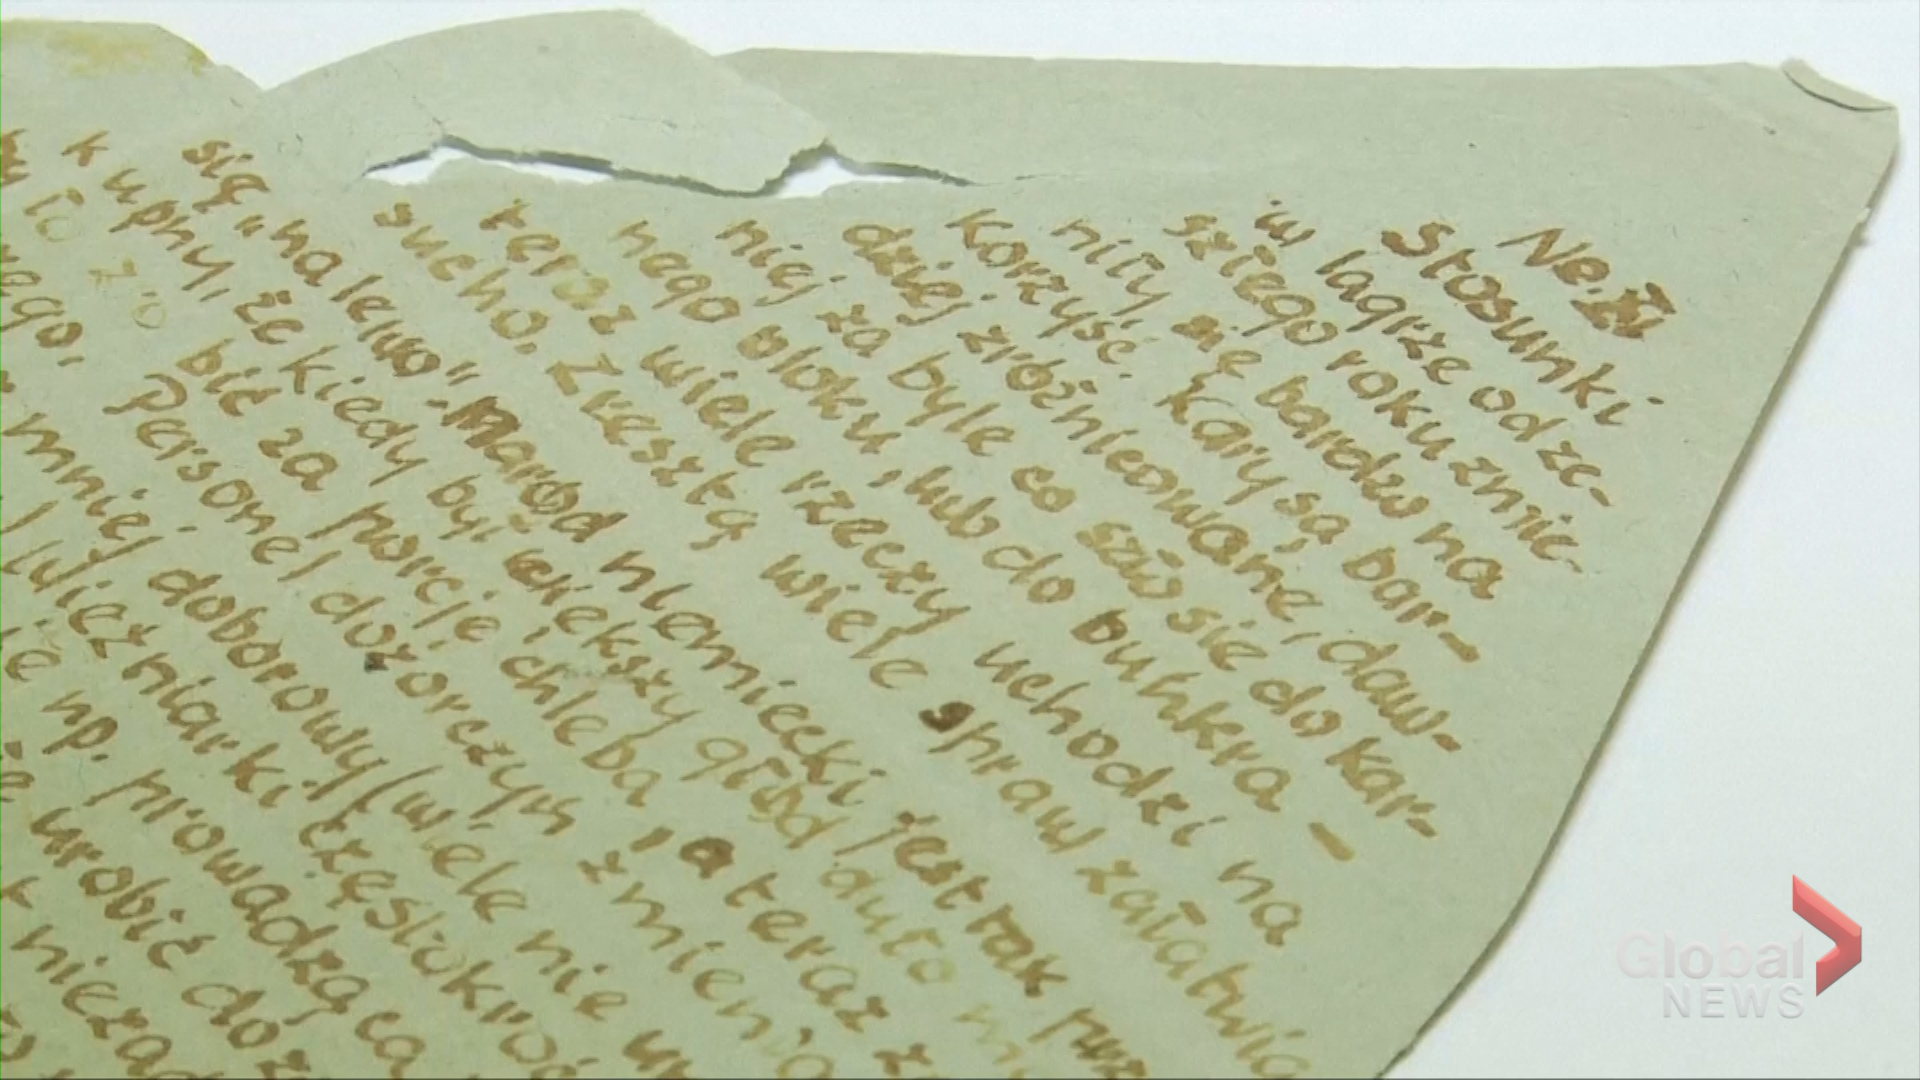 Stosunki
w lagrze od ze-
szłego roku zmie-
niły się bardzo na
Korzyść. Kary są bar-
dziej zróżnicowane, daw-
niej za byle co szło się do kar-
nego bloku, lub do bunkra —
teraz wiele rzeczy uchodzi na
sucho. Zresztą wiele spraw załatwia
się „na lewo". Naród niemiecki jest tak
kupny, że kiedy był większy głód dużo
bić za porcję chleba, a teraz
Personel dozorczyń zmienia
mniej doborowy (wiele nie
więźniarki częstokroć
np. prowadząca
urobić
Global
NEWS